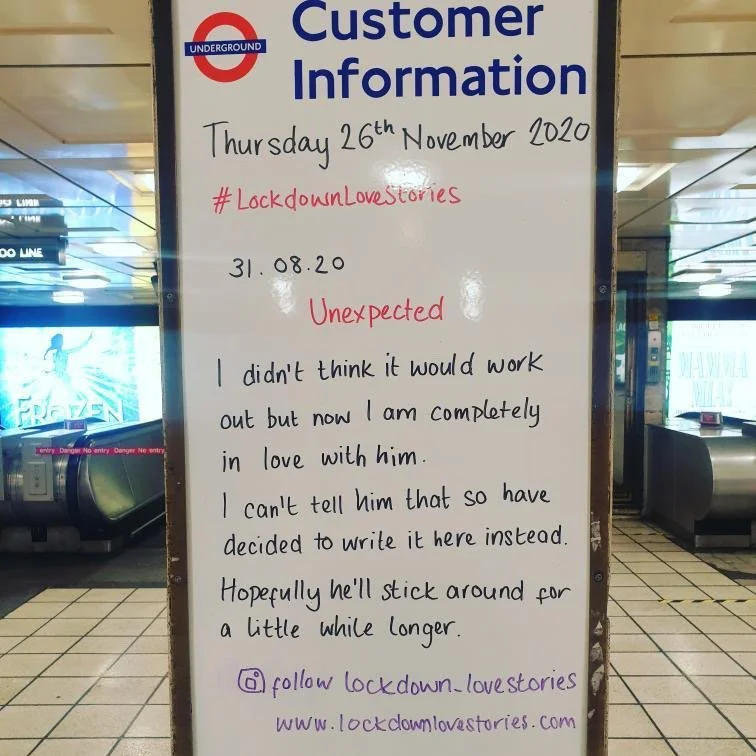 UNDERGROUND
Customer
Information
Thursday 26th November 2020
#LockdownLoveStories
31.08.20
Unexpected
I didn't think it would work
out but now I am completely
in love with him.
I can't tell him that so have
decided to write it here instead.
Hopefully he'll stick around for
a little while longer.
follow lockdown_lovestories
www.lockdownlovestories.com
LINE
FROZEN
entry Danger No entry Danger No entry